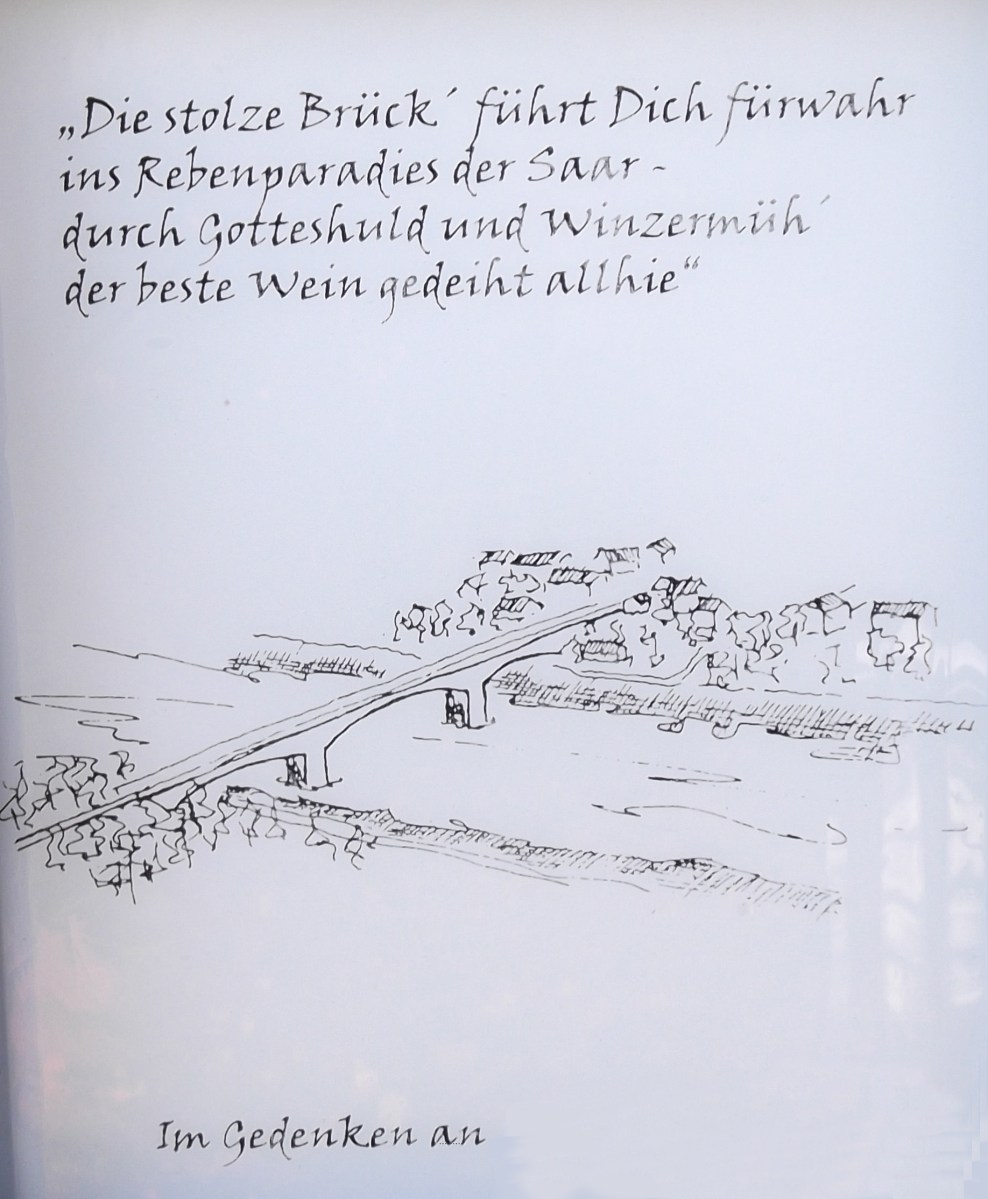 „Die stolze Brück´ führt Dich fürwahr
ins Rebenparadies der Saar -
durch Gotteshuld und Winzermüh´
der beste Wein gedeiht allhie“
Im Gedenken an